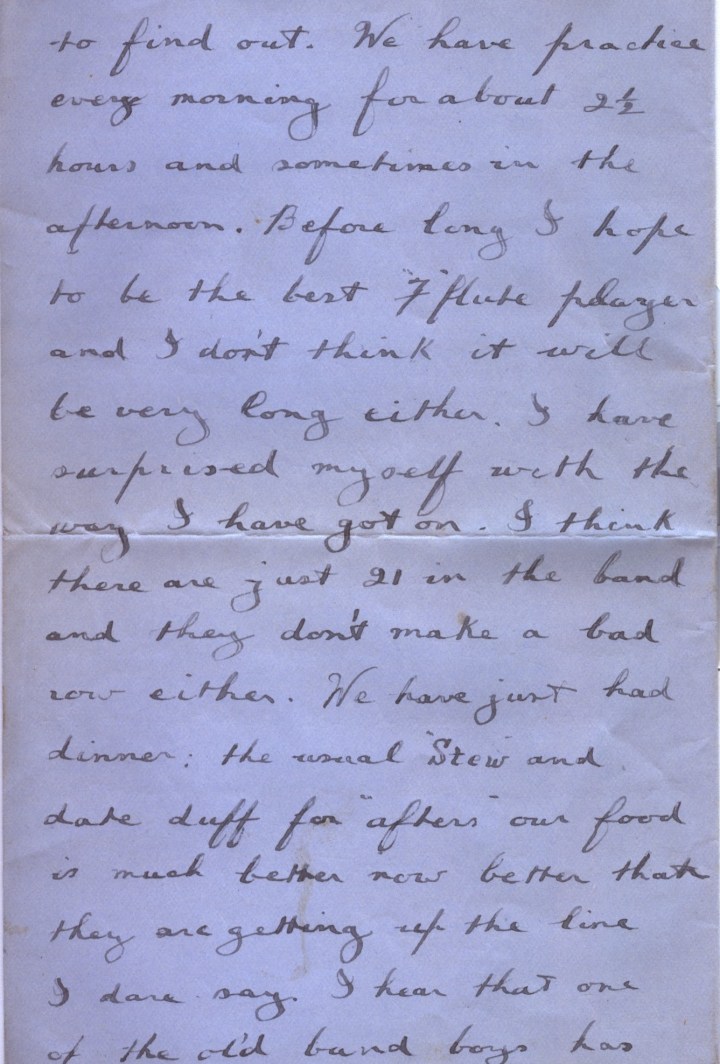 to find out. We have practice
every morning for about 2½
hours and sometimes in the
afternoon. Before long I hope
to be the best "F" flute player
and I don't think it will
be very long either. I have
surprised myself with the
way I have got on. I think
there are just 21 in the band
and they don't make a bad
row either. We have just had
dinner; the usual "Stew" and
date duff for "afters" our food
is much better now better that
they are getting up the line
I dare say. I hear that one
of the old band boys has